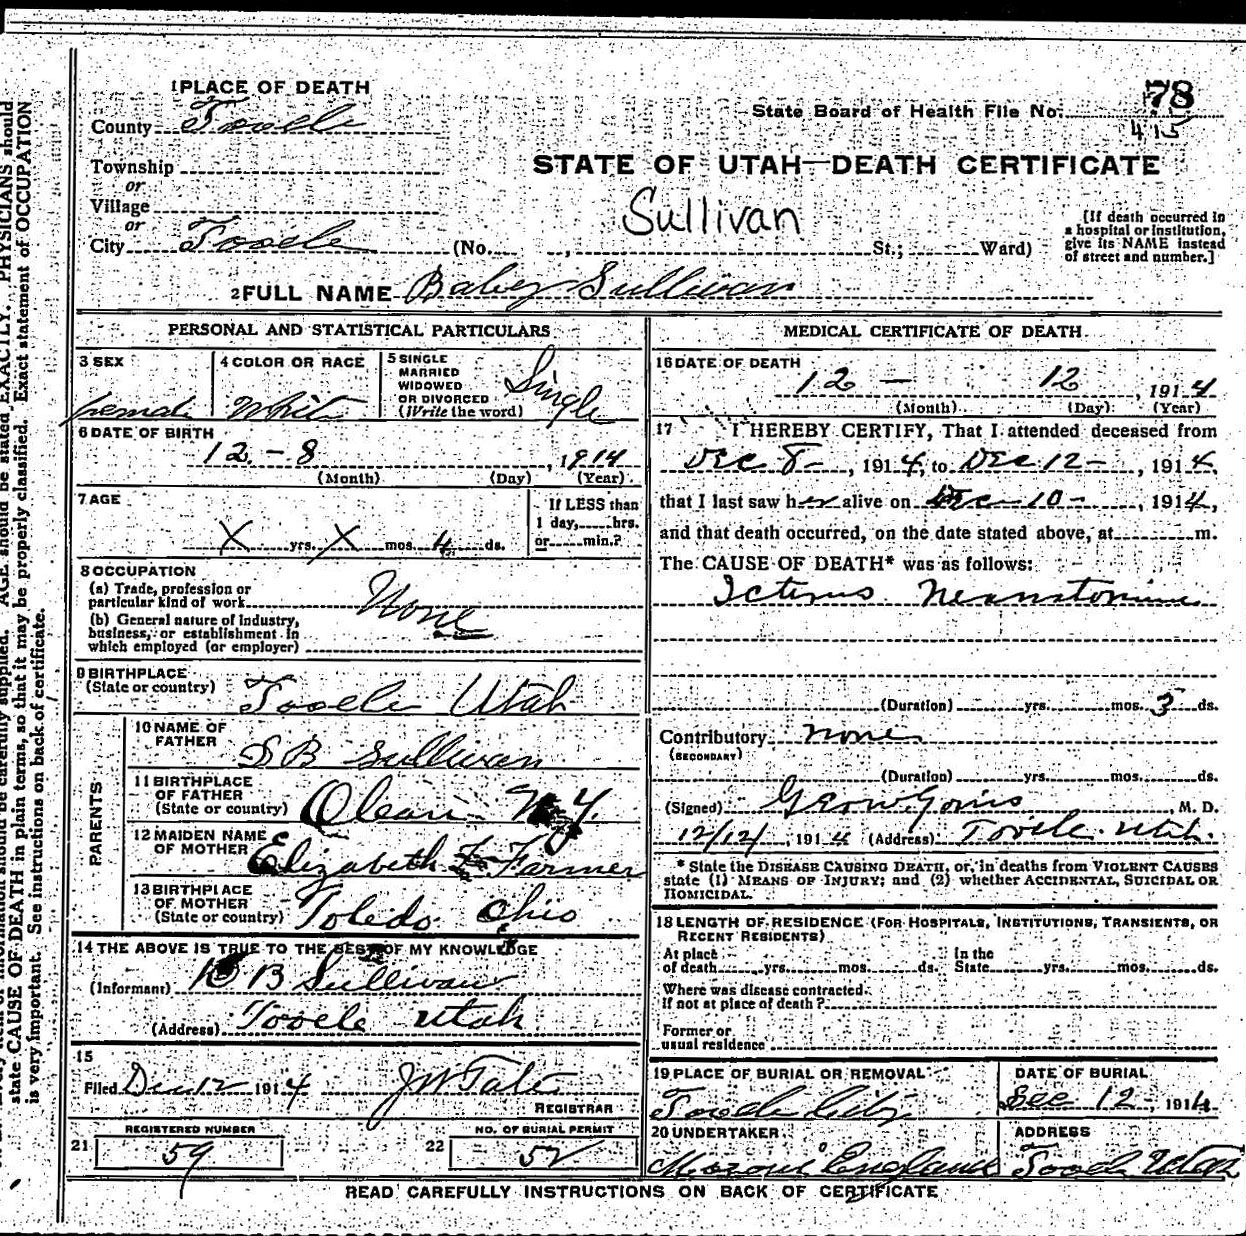 1 PLACE OF DEATH
78
State Board of Health File No.
415
County Tooele
STATE OF UTAH—DEATH CERTIFICATE
Township
or
Village
or
Sullivan
City Tooele (No. , St.; Ward)
[If death occurred in
a hospital or institution,
give its NAME instead
of street and number.]
2 FULL NAME Baby Sullivan
PERSONAL AND STATISTICAL PARTICULARS
3 SEX
female
4 COLOR OR RACE
White
5 SINGLE
MARRIED
WIDOWED
OR DIVORCED
(Write the word)
Single
6 DATE OF BIRTH
12 - 8, 1914
(Month) (Day) (Year)
7 AGE
X yrs. X mos. 4 ds.
If LESS than
1 day, hrs.
or min.?
8 OCCUPATION
(a) Trade, profession or
particular kind of work
None
(b) General nature of industry,
business, or establishment in
which employed (or employer)
9 BIRTHPLACE
(State or country) Tooele Utah
PARENTS
10 NAME OF
FATHER
D B Sullivan
11 BIRTHPLACE
OF FATHER
(State or country) Olean N.Y.
12 MAIDEN NAME
OF MOTHER
Elizabeth Farmer
13 BIRTHPLACE
OF MOTHER
(State or country) Toledo Ohio
14 THE ABOVE IS TRUE TO THE BEST OF MY KNOWLEDGE
(Informant) D B Sullivan
(Address) Tooele Utah
15
Filed Dec 12 1914 J W Tate
REGISTRAR
REGISTERED NUMBER
21 59
NO. OF BURIAL PERMIT
22 52
MEDICAL CERTIFICATE OF DEATH
16 DATE OF DEATH
12 - 12, 1914
(Month) (Day) (Year)
17 I HEREBY CERTIFY, That I attended deceased from
Dec 8, 1914, to Dec 12, 1914,
that I last saw her alive on Dec 10, 1914,
and that death occurred, on the date stated above, at m.
The CAUSE OF DEATH* was as follows:
Icterus
(Duration) yrs. mos. 3 ds.
Contributory none
(SECONDARY)
(Duration) yrs. mos. ds.
(Signed) M. D.
12/12/, 1914 (Address) Tooele Utah.
* State the DISEASE CAUSING DEATH, or, in deaths from VIOLENT CAUSES
state (1) MEANS OF INJURY; and (2) whether ACCIDENTAL, SUICIDAL OR
HOMICIDAL.
18 LENGTH OF RESIDENCE (FOR HOSPITALS, INSTITUTIONS, TRANSIENTS, OR
RECENT RESIDENTS)
At place
of death yrs. mos. ds.
In the
State yrs. mos. ds.
Where was disease contracted
if not at place of death?
Former or
usual residence
19 PLACE OF BURIAL OR REMOVAL
Tooele City
DATE OF BURIAL
Dec 12, 1914
20 UNDERTAKER
England
ADDRESS
Tooele Utah
READ CAREFULLY INSTRUCTIONS ON BACK OF CERTIFICATE
information should be carefully supplied. AGE should be stated EXACTLY. PHYSICIANS should
state CAUSE OF DEATH in plain terms, so that it may be properly classified. Exact statement of OCCUPATION
is very important. See instructions on back of certificate.